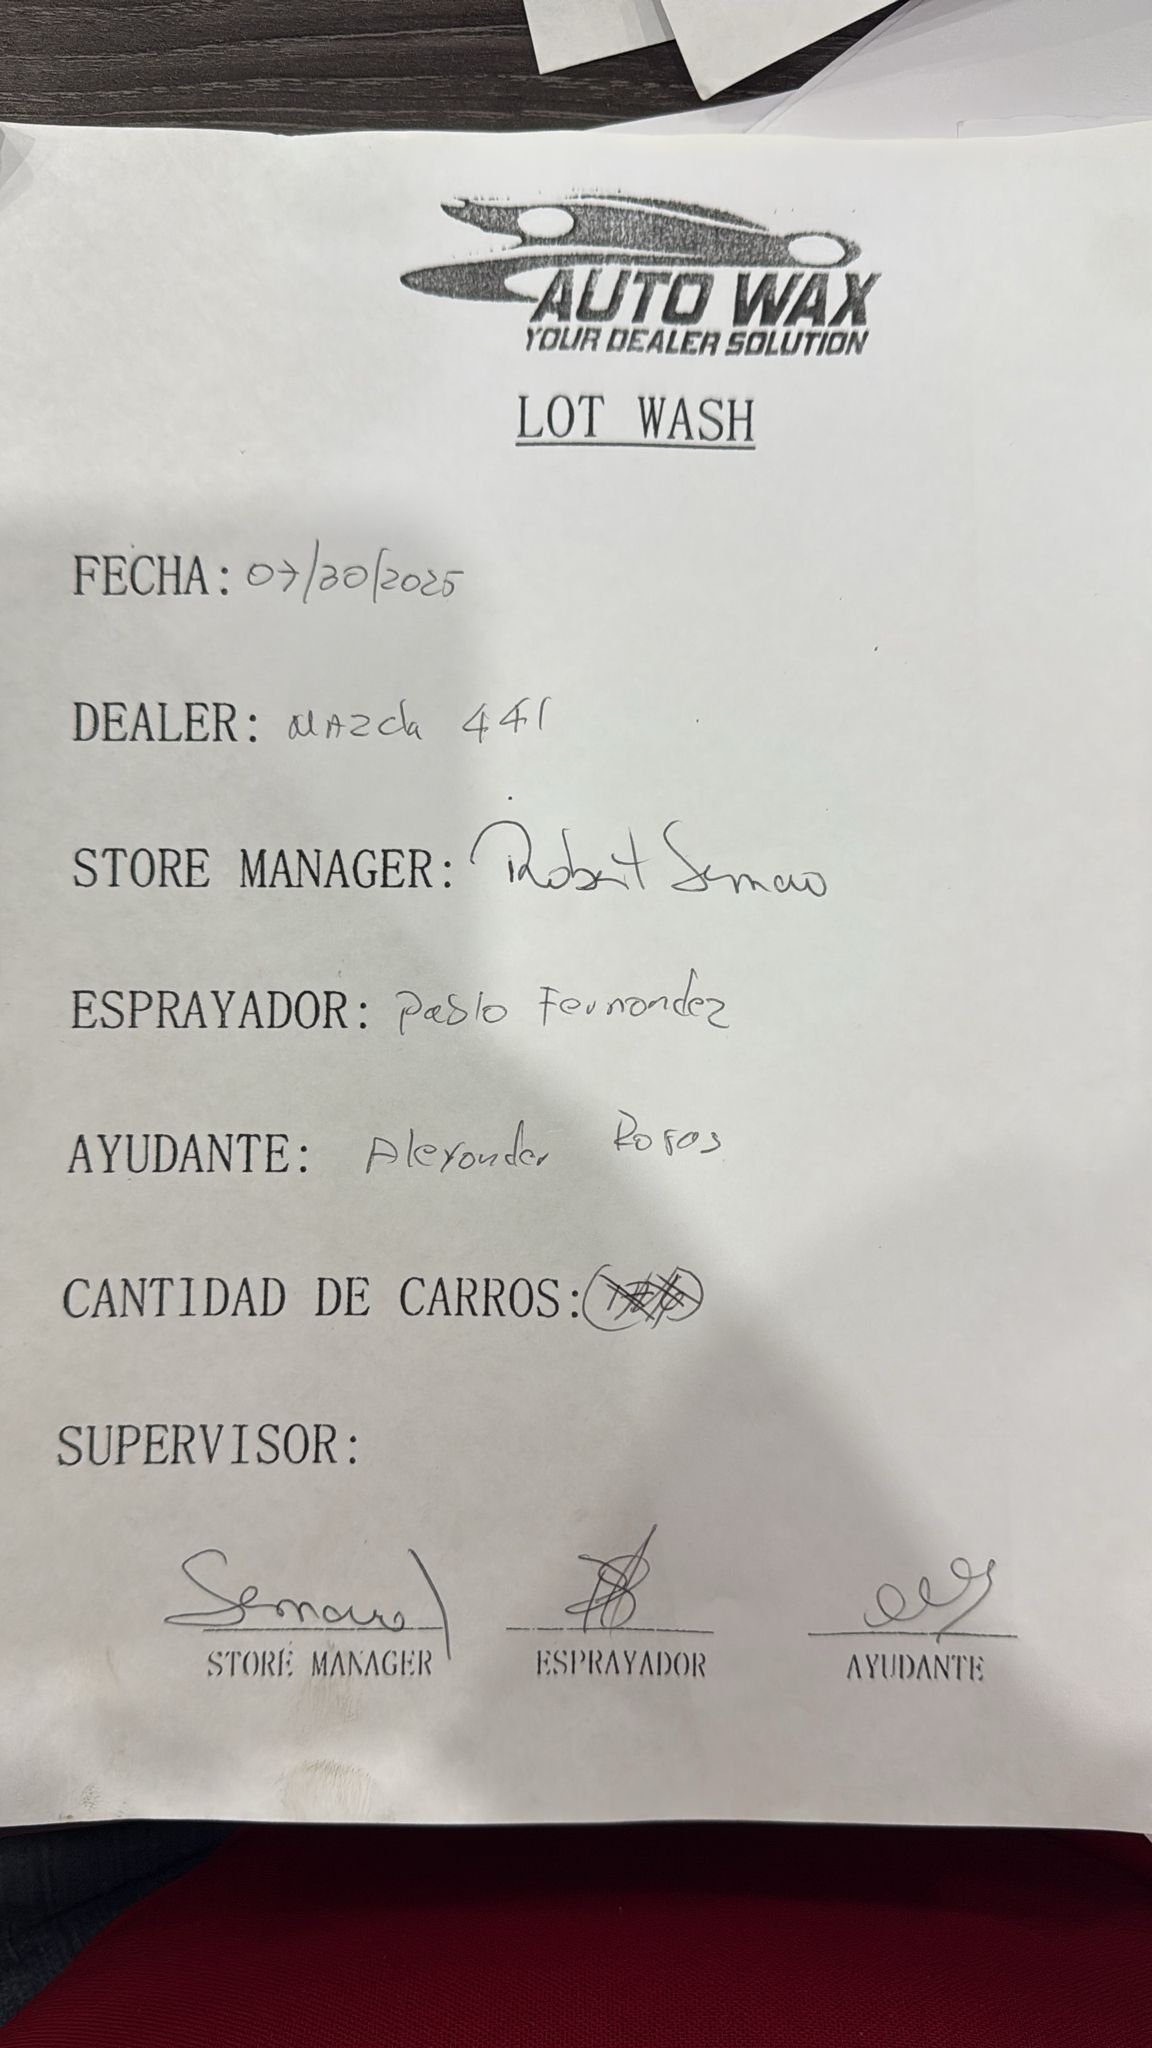 AUTO WAX
YOUR DEALER SOLUTION
LOT WASH
FECHA: 07/30/2025
DEALER: Mazda 441
STORE MANAGER: Robert
ESPRAYADOR: Pablo Fernandez
AYUDANTE: Alexander Rosas
CANTIDAD DE CARROS:
SUPERVISOR:
STORE MANAGER ESPRAYADOR AYUDANTE